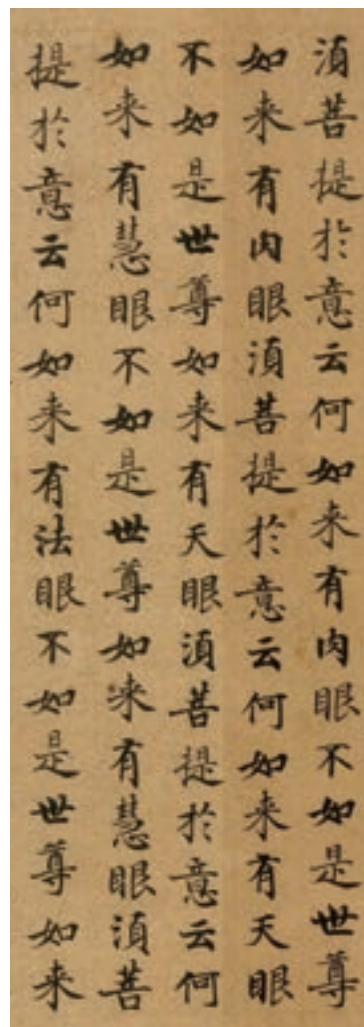 湏菩提於意云何如来有肉眼不如是世尊
如来有肉眼湏菩提於意云何如来有天眼
不如是世尊如来有天眼湏菩提於意云何
如来有慧眼不如是世尊如来有慧眼湏菩
提於意云何如来有法眼不如是世尊如来